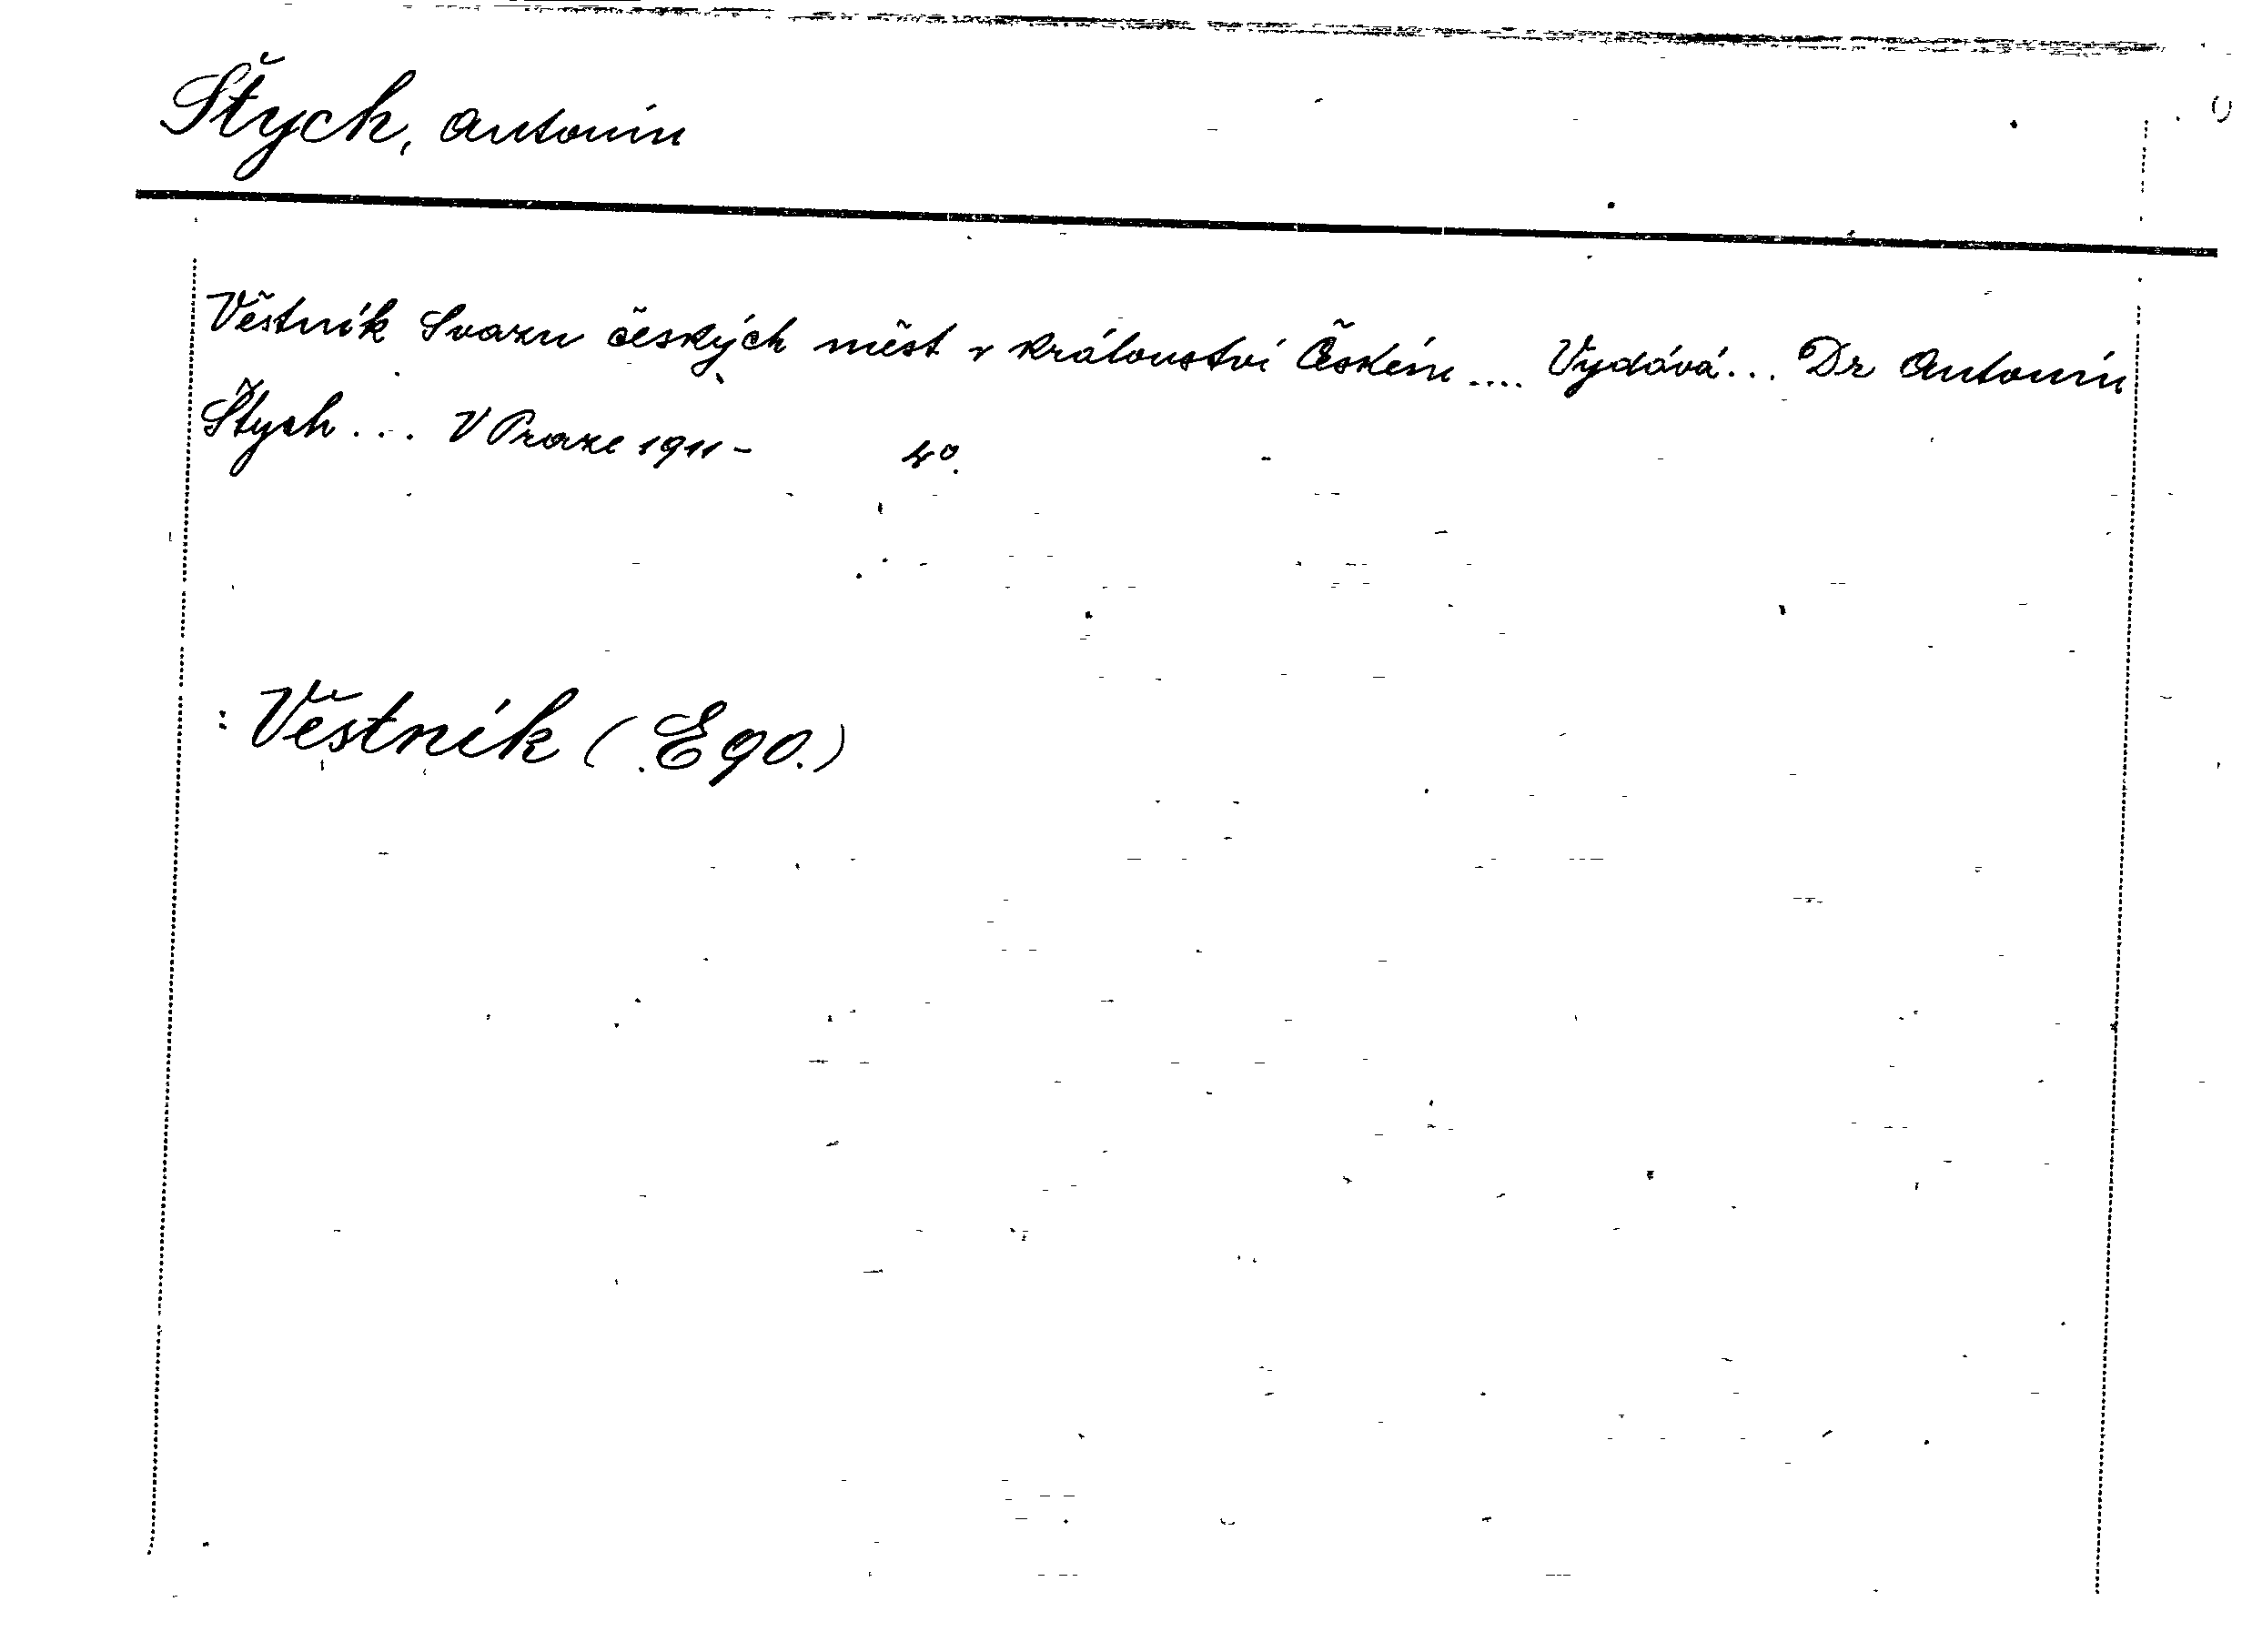 Štych, Antonín
Věstník Svazu českých měst v království Českém .... Vydává ... Dr Antonín
Štych ... V Praze 1911 - 4°.
: Věstník (E 90.)